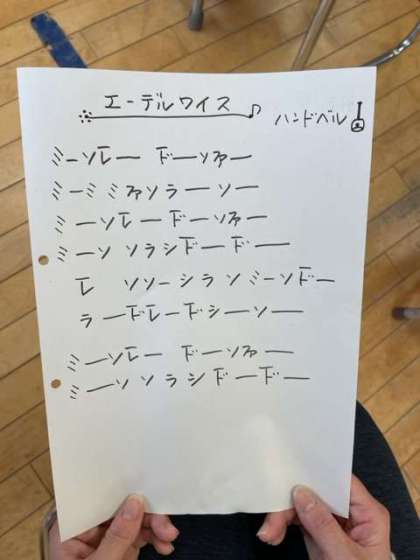 エーデルワイス
ハンドベル
ミーソレー ドーソファー
ミーミミファソラーソー
ミーソレードーソファー
ミーソソラシドードー
レ ソソーシラソミーソドー
ラードレードシーソー
ミーソレー ドーソファー
ミーソソラシドードー